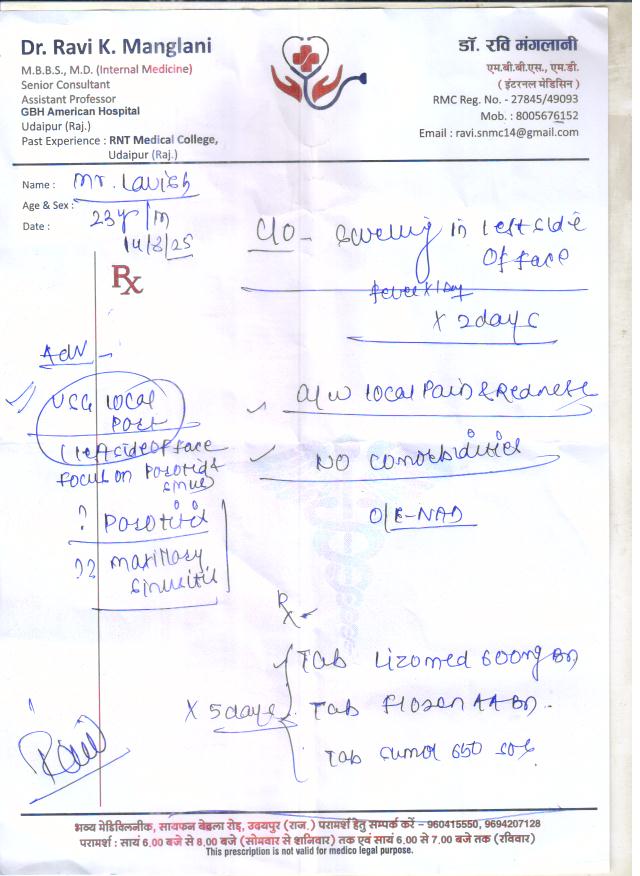 Dr. Ravi K. Manglani
M.B.B.S., M.D. (Internal Medicine)
Senior Consultant
Assistant Professor
GBH American Hospital
Udaipur (Raj.)
Past Experience : RNT Medical College,
Udaipur (Raj.)
डॉ. रवि मंगलानी
एम.बी.बी.एस., एम.डी.
( इंटरनल मेडिसिन )
RMC Reg. No. - 27845/49093
Mob. : 8005676152
Email : ravi.snmc14@gmail.com
Name : Mr. Lavish
Age & Sex : 23y/M
Date : 14/8/25
Rx
C/O - Swelling in left side
of face
fever x 1 day
x 2 days
A/W local Pain & Redness
NO comorbidities
O/E - NAD
Adv -
USG local
Part
(left side of face
focus on Parotid &
sinus)
? Parotitis
?? maxillary
sinusitis
Rx
Tab Lizomed 600mg BD
Tab Flozen AA BD
Tab Sumol 650 SOS
x 5 days
भव्य मेडिक्लिनीक, सायफन बेदला रोड़, उदयपुर (राज.) परामर्श हेतु सम्पर्क करें – 960415550, 9694207128
परामर्श : सायं 6.00 बजे से 8.00 बजे (सोमवार से शनिवार) तक एवं सायं 6.00 से 7.00 बजे तक (रविवार)
This prescription is not valid for medico legal purpose.